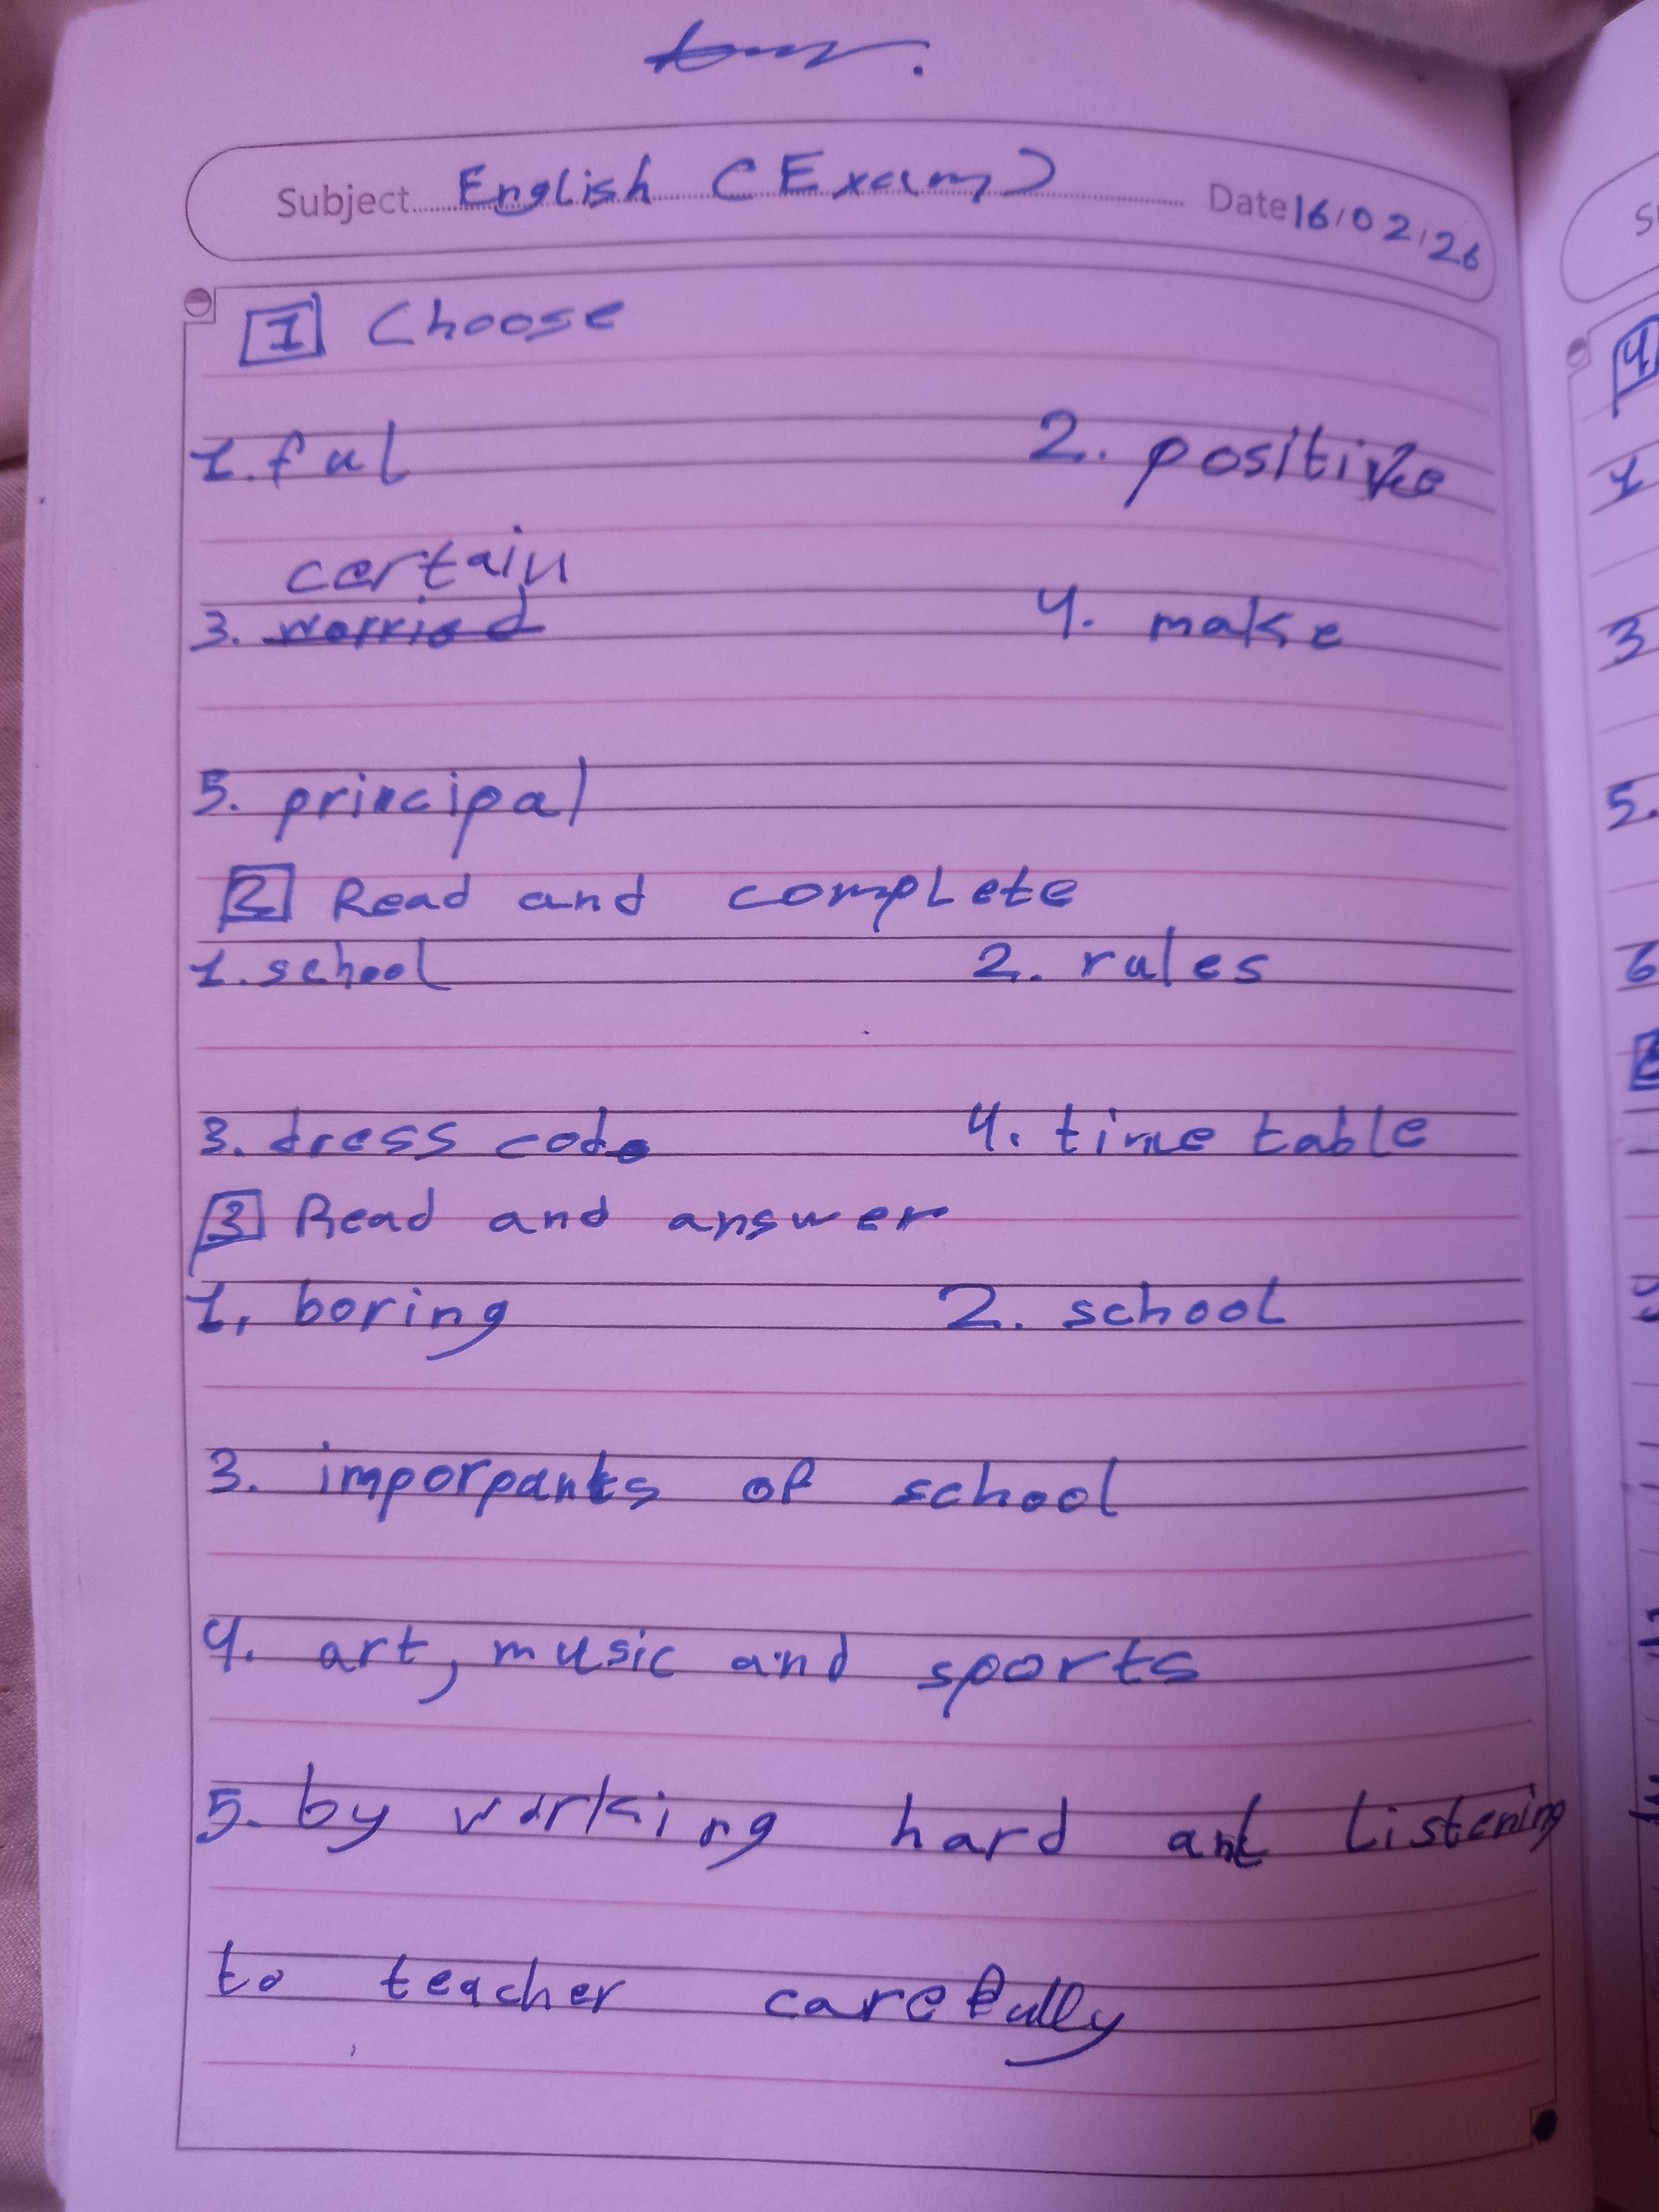 Subject English (Exam) Date 16/02/26
1 Choose
1. ful 2. positive
certain
3. worried 4. make
5. principal
2 Read and complete
1. school 2. rules
3. dress code 4. time table
3 Read and answer
1, boring 2. school
3. imporpants of school
4. art, music and sports
5. by working hard and listening
to teacher carefully
4
1
3
5.
6